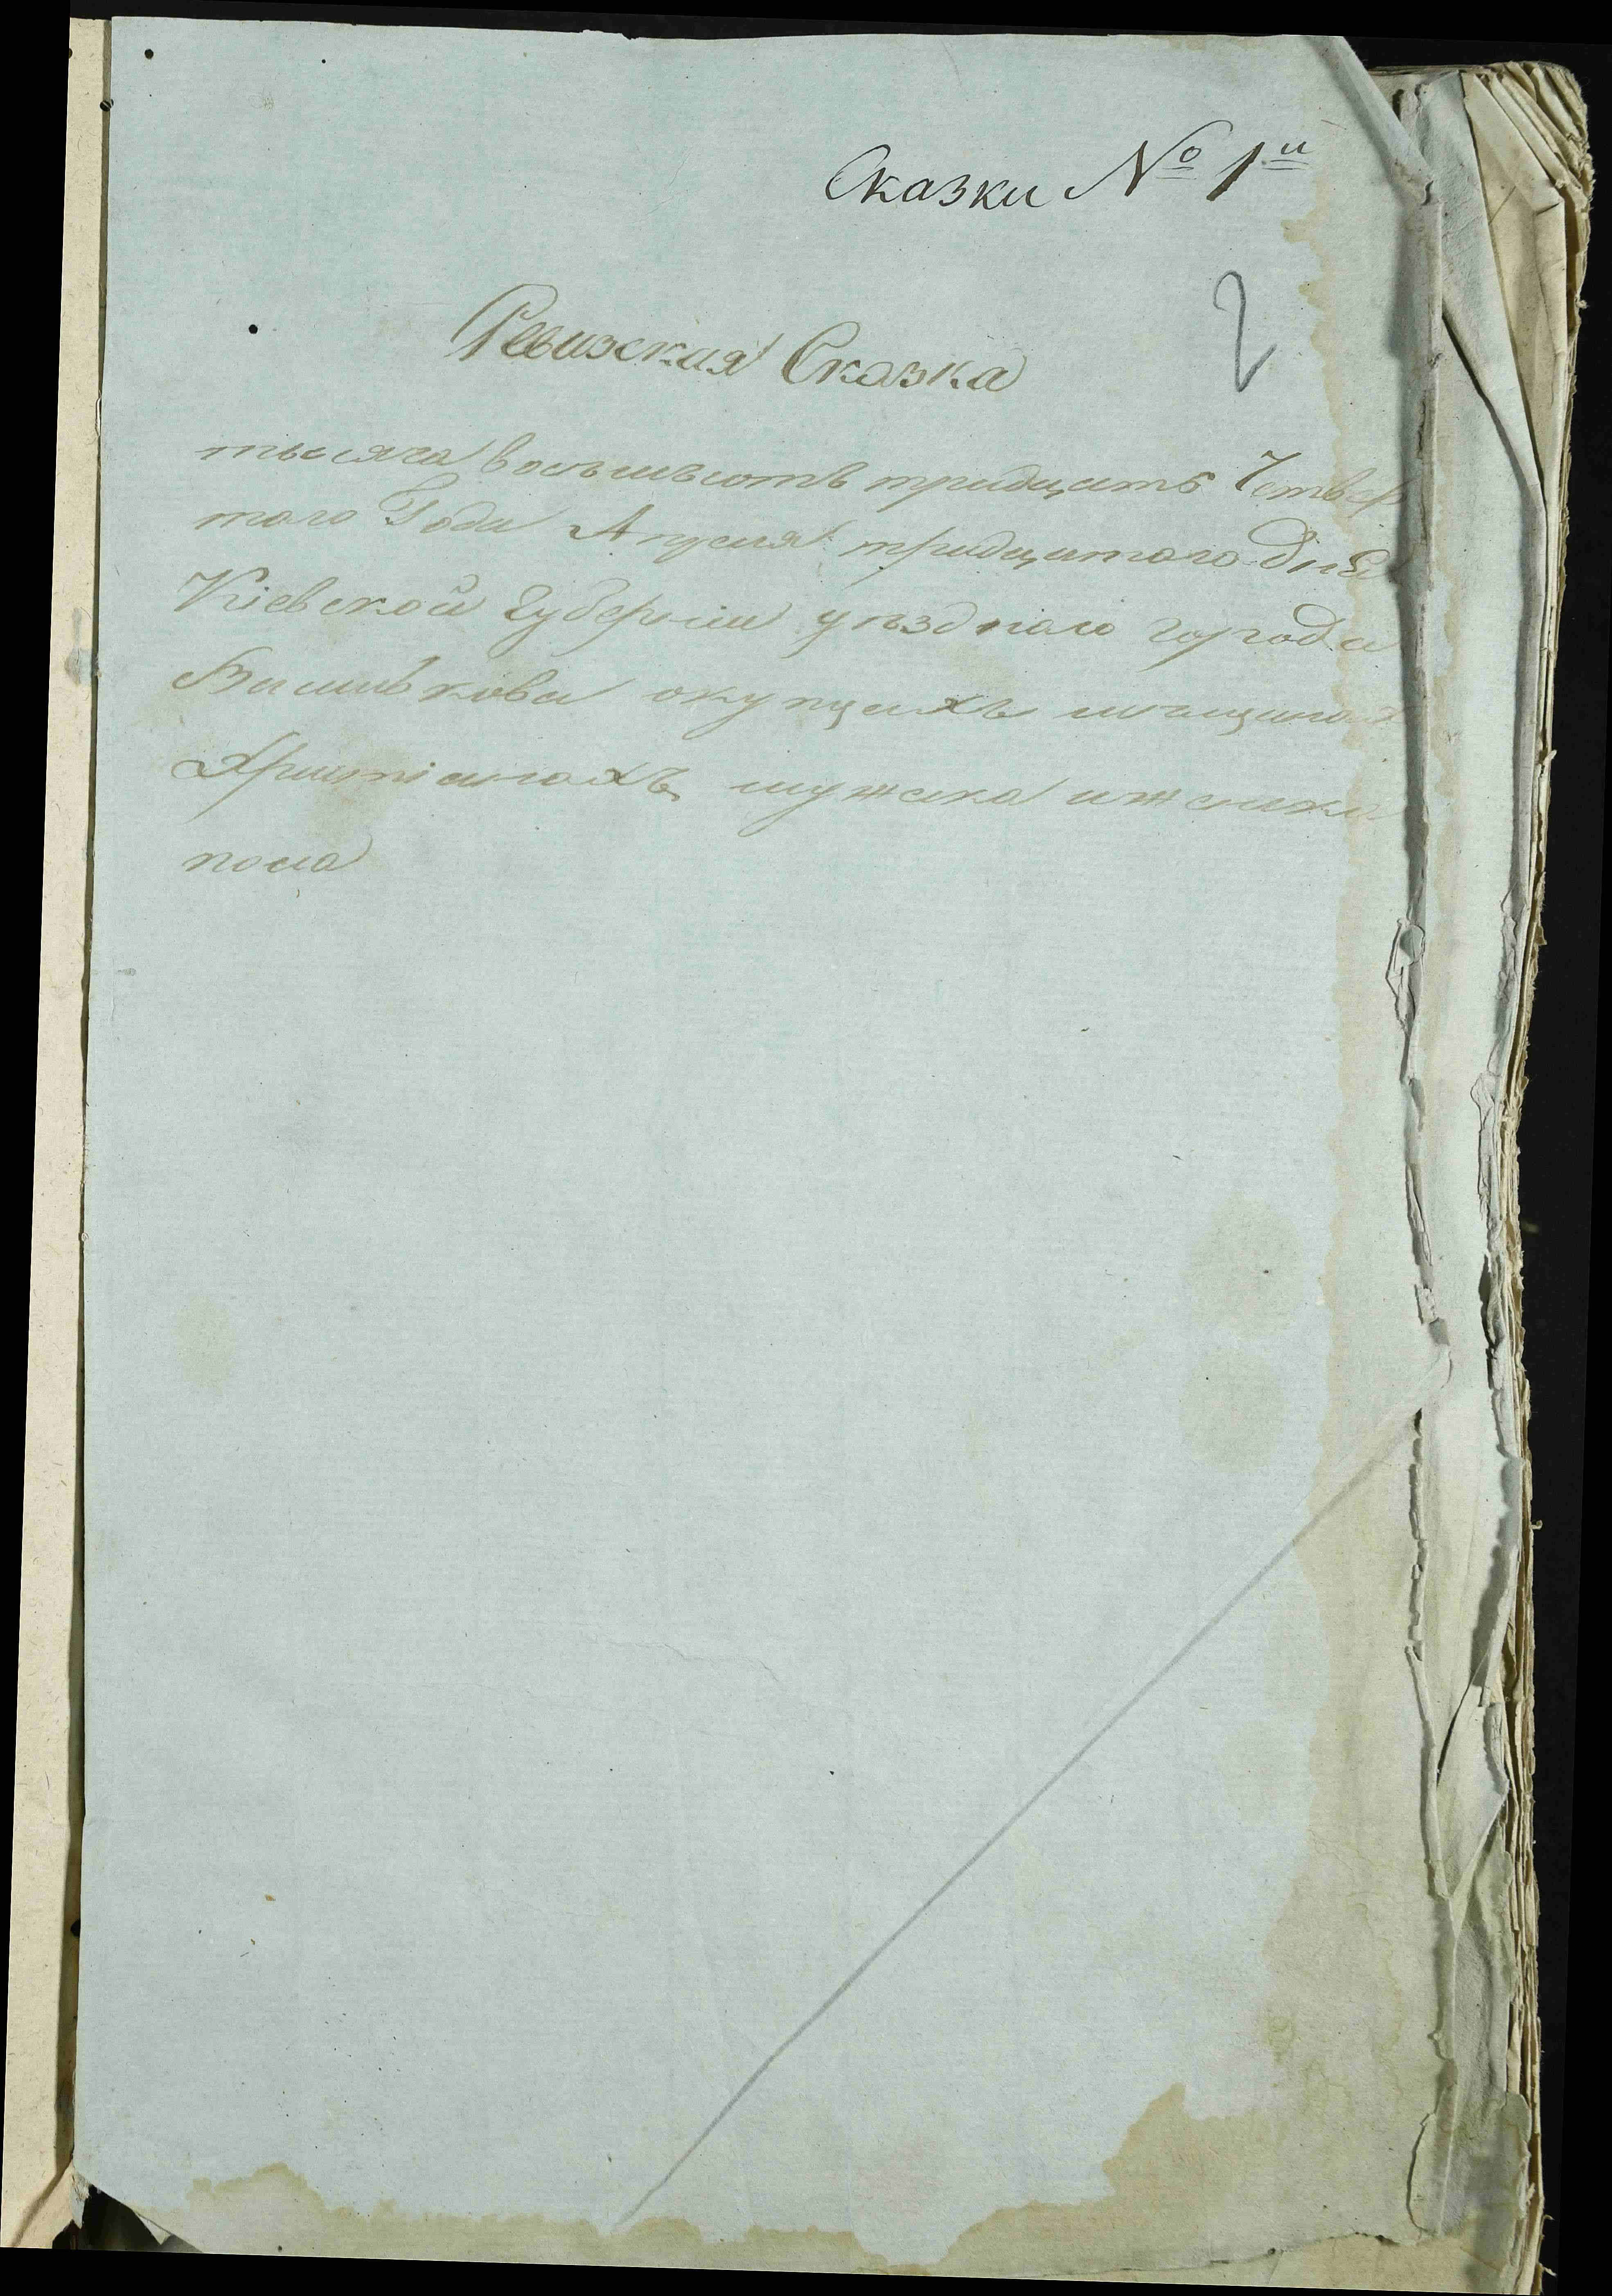 Сказки № 1й
2
Ревизская Сказка
тысяча восъмьсотъ тридцать Четвер
того Года Апреля тридцатого дня
Кіевской Губерніи уѣздного города
Василькова окупцахъ мещанах
Христіанахъ мужска иженска
пола